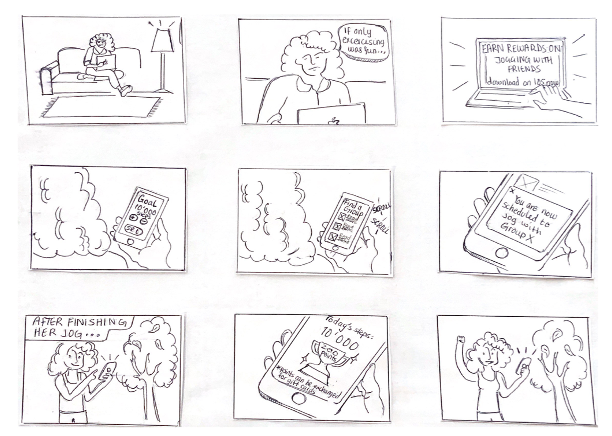 if only
exercising
was fun...
EARN REWARDS ON
JOGGING WITH
FRIENDS
download on iOS now
Goal
10'000
SET
Find a
Group
SCROLL
SCROLL
You are now
scheduled to
Jog with
Group X
AFTER FINISHING
HER JOG...
Today's steps:
10'000
200
points
*points can be exchanged
for gift cards